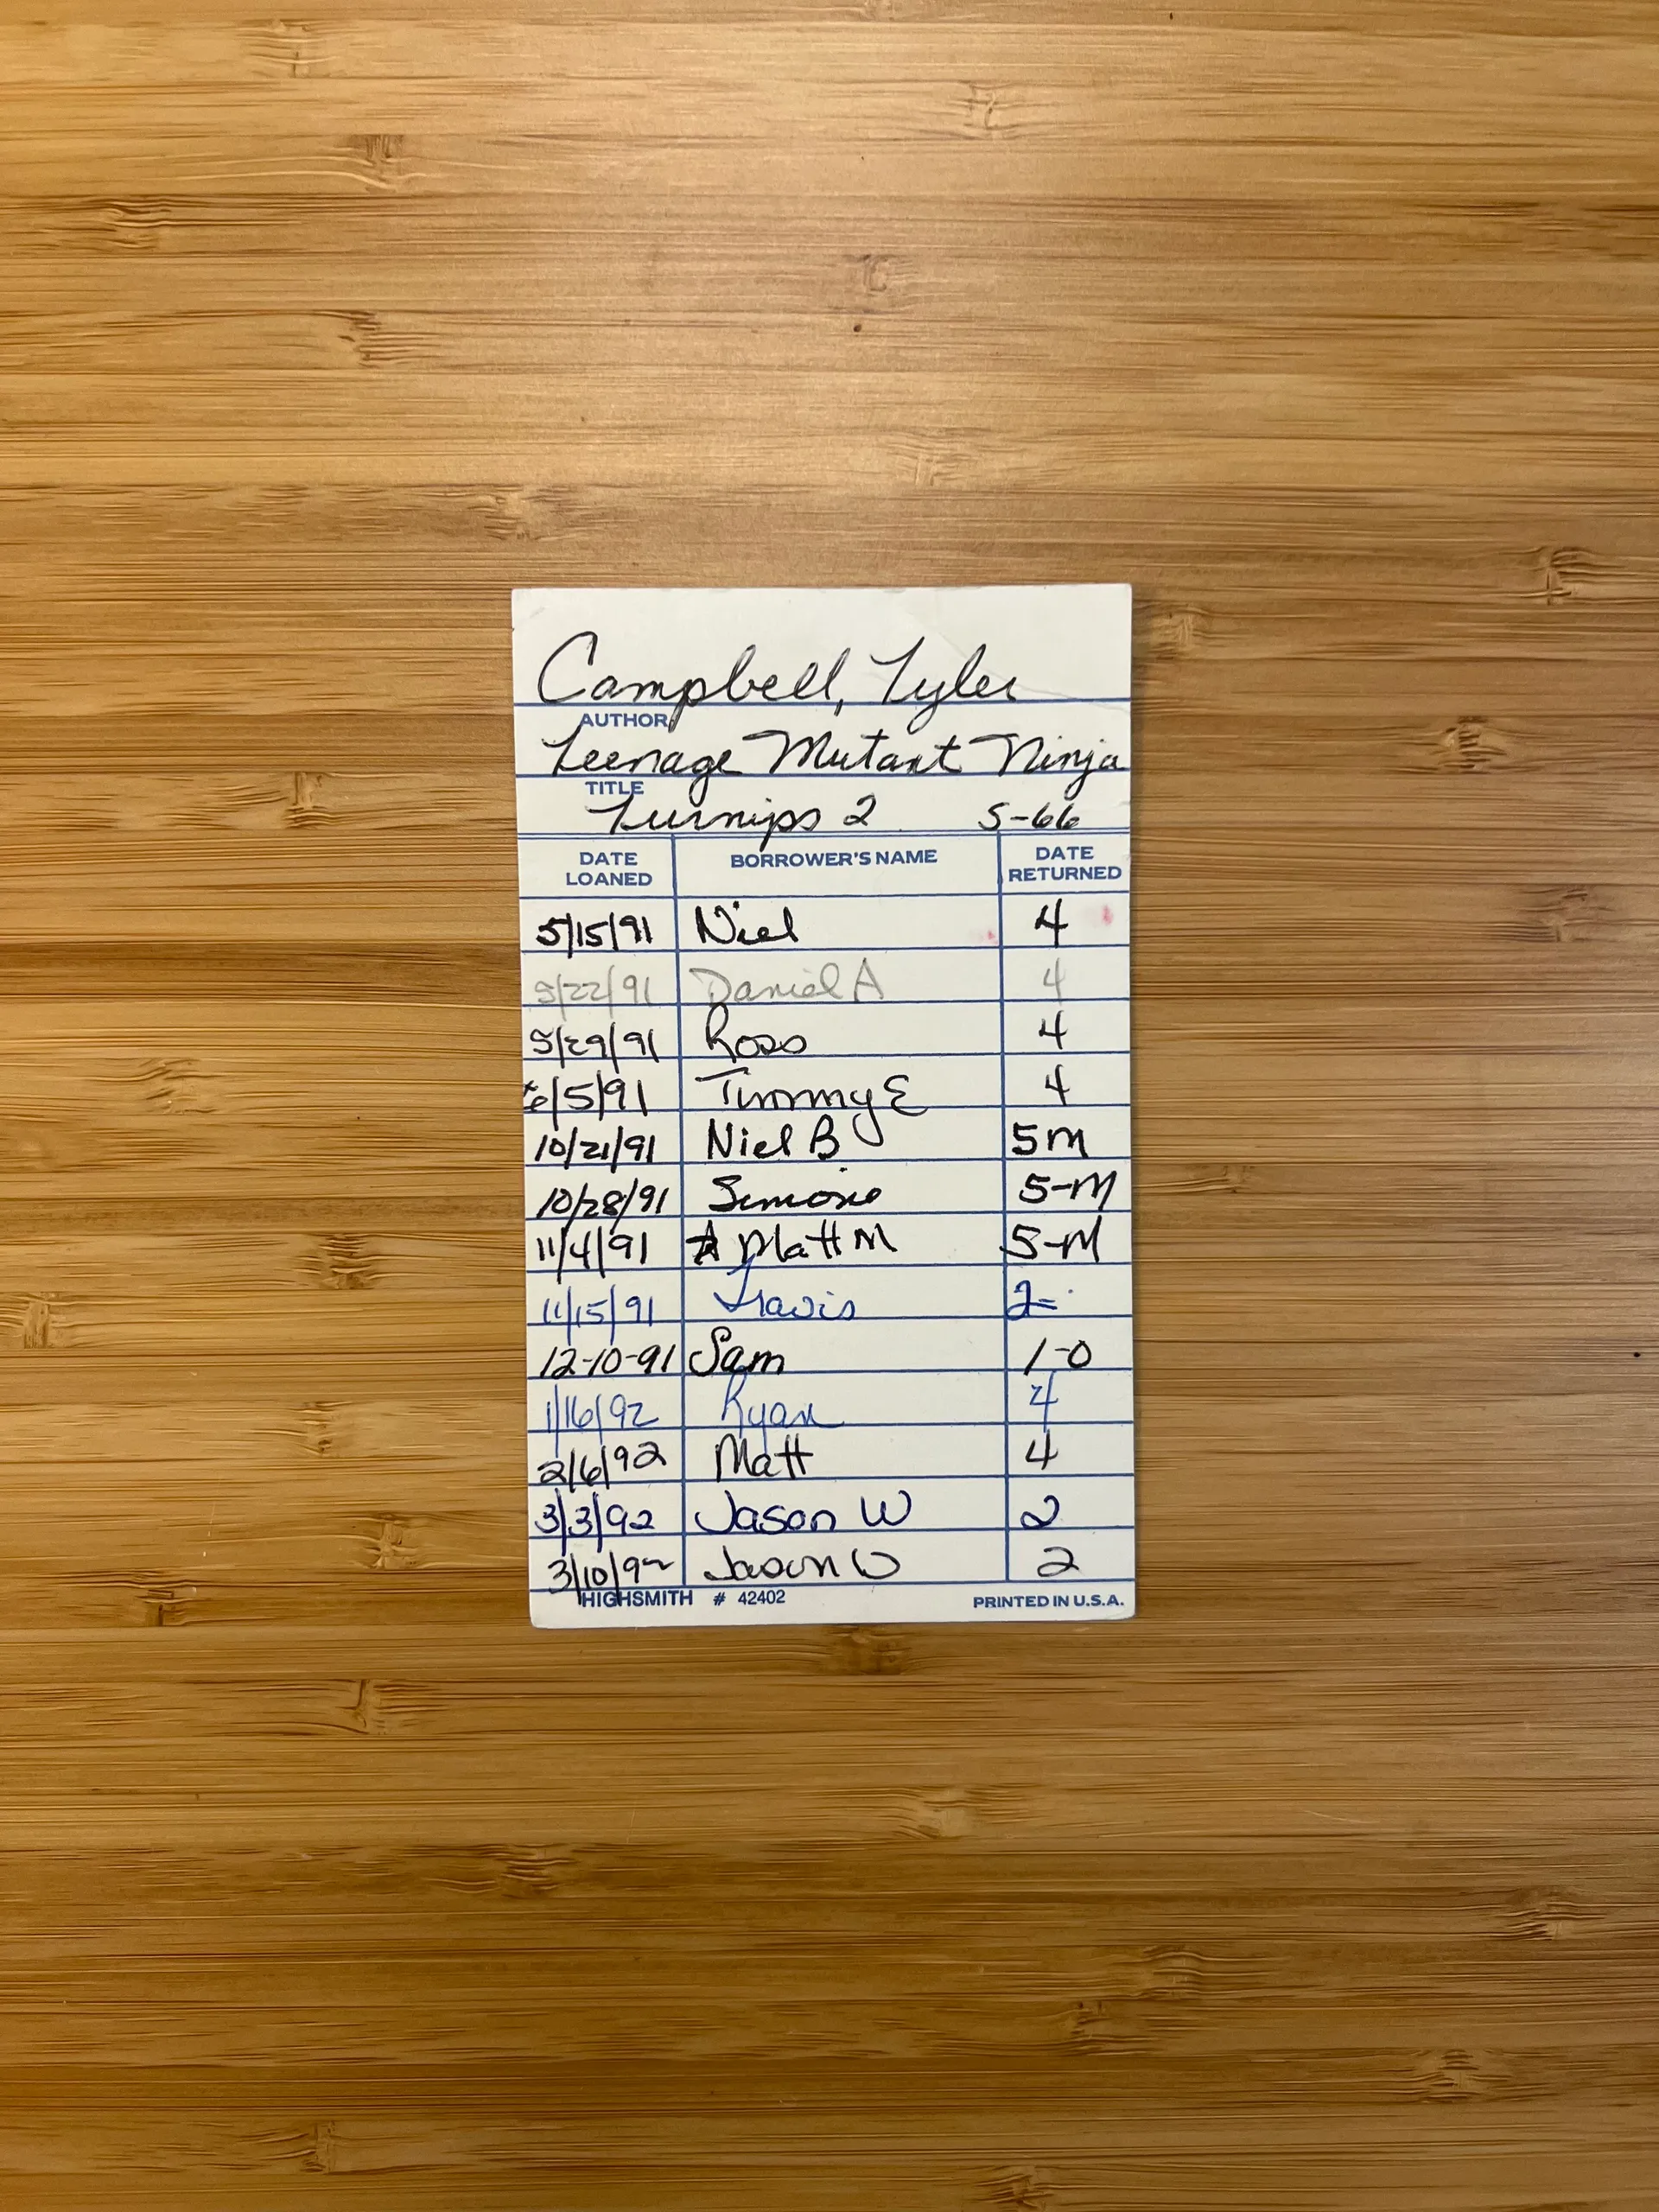 Campbell, Tyler
AUTHOR
Teenage Mutant Ninja
TITLE
Turnips 2 S-66
DATE LOANED BORROWER'S NAME DATE RETURNED
5/15/91 Niel 4
5/22/91 Daniel A 4
5/29/91 Ross 4
6/5/91 Timmy E 4
10/21/91 Niel B 5M
10/28/91 Simone 5-M
11/4/91 Matt M 5-M
11/15/91 Travis 2
12-10-91 Sam 1-0
1/16/92 Ryan 4
2/6/92 Matt 4
3/3/92 Jason W 2
3/10/92 Jason W 2
HIGHSMITH # 42402 PRINTED IN U.S.A.